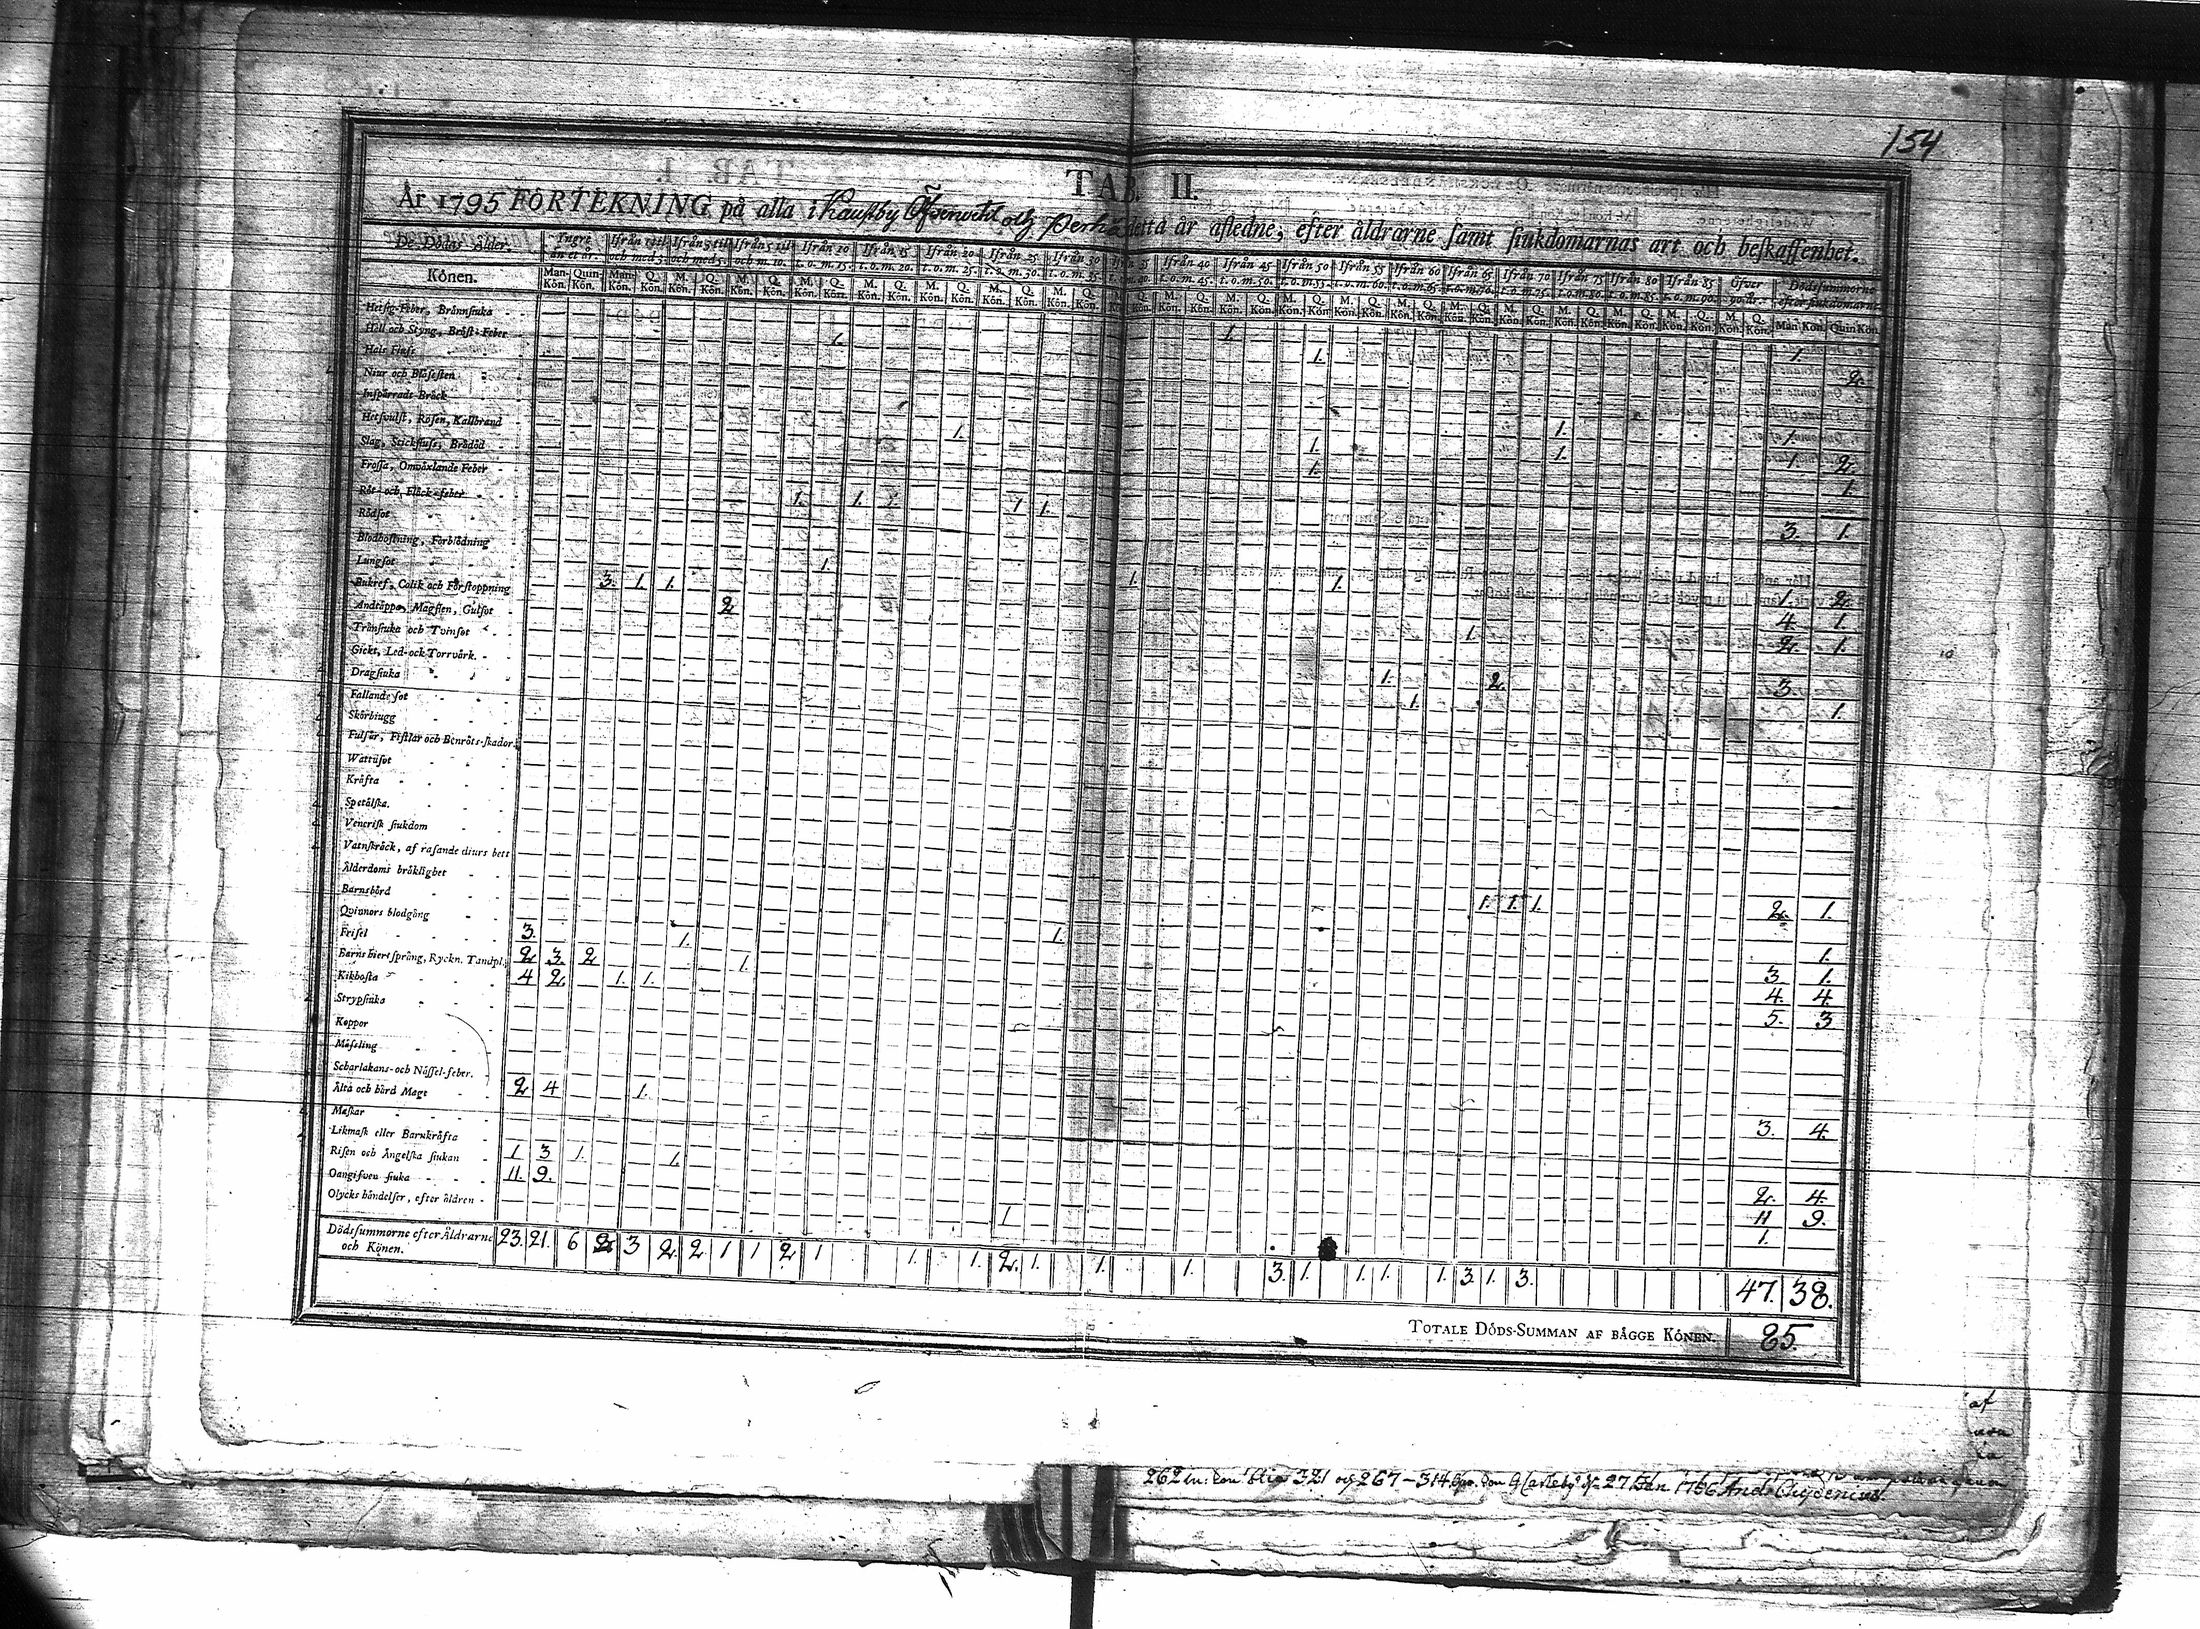 154
TAB. II.
År 1795 FÖRTEKNING på alla i Kaustby Öfverwetil och Perho detta år afledne, efter åldrarne samt siukdomarnas art och beskaffenhet.
De Dödas Ålder. Yngre än et år. Ifrån 1 til och med 3. Ifrån 3 til och med 5. Ifrån 5 til och m. 10. Ifrån 10 t. o. m. 15. Ifrån 15 t. o. m. 20. Ifrån 20 t. o. m. 25. Ifrån 25 t. o. m. 30. Ifrån 30 t. o. m. 35. Ifrån 35 t. o. m. 40. Ifrån 40 t. o. m. 45. Ifrån 45 t. o. m. 50. Ifrån 50 t. o. m. 55. Ifrån 55 t. o. m. 60. Ifrån 60 t. o. m. 65. Ifrån 65 t. o. m. 70. Ifrån 70 t. o. m. 75. Ifrån 75 t. o. m. 80. Ifrån 80 t. o. m. 85. Ifrån 85 t. o. m. 90. Öfver 90. år. Dödssummorne efter siukdomarne.
Könen. Man-Kön. Quin-Kön. Man-Kön. Q. Kön. M. Kön. Q. Kön. M. Kön. Q. Kön. Man Kön. Quin Kön.
Hetsig-Feber, Brännsiuka
Håll och Styng, Bröst-Feber 1. 1. 1.
Hals Fluss 1. 2.
Niur och Blåsesten
Inspärrads Bråck
Hetsvulst, Rosen, Kallbrand 1. 1. 1.
Slag, Stickfluss, Brådöd 1. 1. 1. 2.
Frossa, Omväxlande Feber 1. 1.
Röt- och Fläck-feber 1. 1. 1. 1 1.
Rödsot 3. 1.
Blodhostning, Förblödning
Lungsot 1. 1. 1. 2.
Bukref, Colik och Förstoppning 3. 1. 1. 1. 4. 1.
Andtäppa, Magsten, Gulsot 2 1. 2. 1.
Trånsiuka och Tvinsot
Gickt, Led- ock Torrvärk. 1. 2. 3.
Dragsiuka 1. 1.
Fallande sot
Skörbiugg
Fulsår, Fistlar och Benröts-skador
Wattusot
Kräfta
Spetälska.
Venerisk siukdom
Vatnskräck, af rasande diurs bett
Ålderdoms bräklighet 1. 1. 1. 2. 1.
Barnsbörd
Qvinnors blodgång 1. 1.
Frisel 3. 1. 3 1.
Barns hiertsprång, Ryckn. Tandpl. 2 3. 2 1. 4. 4
Kikhosta 4 2. 1. 1. 5. 3
Strypsiuka
Koppor
Mässling
Scharlakans- och Nässel-feber.
Älta och hård Mage 2 4 1. 3. 4.
Maskar
Likmask eller Barnkräfta
Risen och Ängelska siukan 1 3 1. 1. 2. 4.
Oangifven siuka 11. 9. 11 9.
Olycks händelser, efter åldren 1 1.
Dödssummorne efter Åldrarne och Könen. 23. 21. 6 2 3 2. 2 1 1 2 1 1. 1. 2. 1. 1. 1. 3. 1. 1. 1. 1. 3. 1. 3. 47. 38.
TOTALE DÖDS-SUMMAN AF BÄGGE KÖNEN. 85.
af
262 321 och 267–314 27 1786 And. Chydenius.